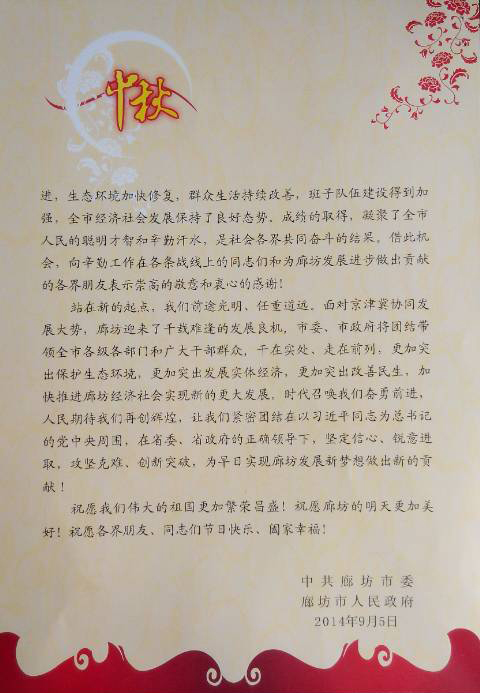 中秋
进，生态环境加快修复，群众生活持续改善，班子队伍建设得到加
强，全市经济社会发展保持了良好态势。成绩的取得，凝聚了全市
人民的聪明才智和辛勤汗水，是社会各界共同奋斗的结果。借此机
会，向辛勤工作在各条战线上的同志们和为廊坊发展进步做出贡献
的各界朋友表示崇高的敬意和衷心的感谢！
站在新的起点，我们前途光明、任重道远。面对京津冀协同发
展大势，廊坊迎来了千载难逢的发展良机，市委、市政府将团结带
领全市各级各部门和广大干部群众，干在实处、走在前列，更加突
出保护生态环境，更加突出发展实体经济，更加突出改善民生，加
快推进廊坊经济社会实现新的更大发展。时代召唤我们奋勇前进，
人民期待我们再创辉煌，让我们紧密团结在以习近平同志为总书记
的党中央周围，在省委、省政府的正确领导下，坚定信心、锐意进
取，攻坚克难、创新突破，为早日实现廊坊发展新梦想做出新的贡
献！
祝愿我们伟大的祖国更加繁荣昌盛！祝愿廊坊的明天更加美
好！祝愿各界朋友、同志们节日快乐、阖家幸福！
中共廊坊市委
廊坊市人民政府
2014年9月5日